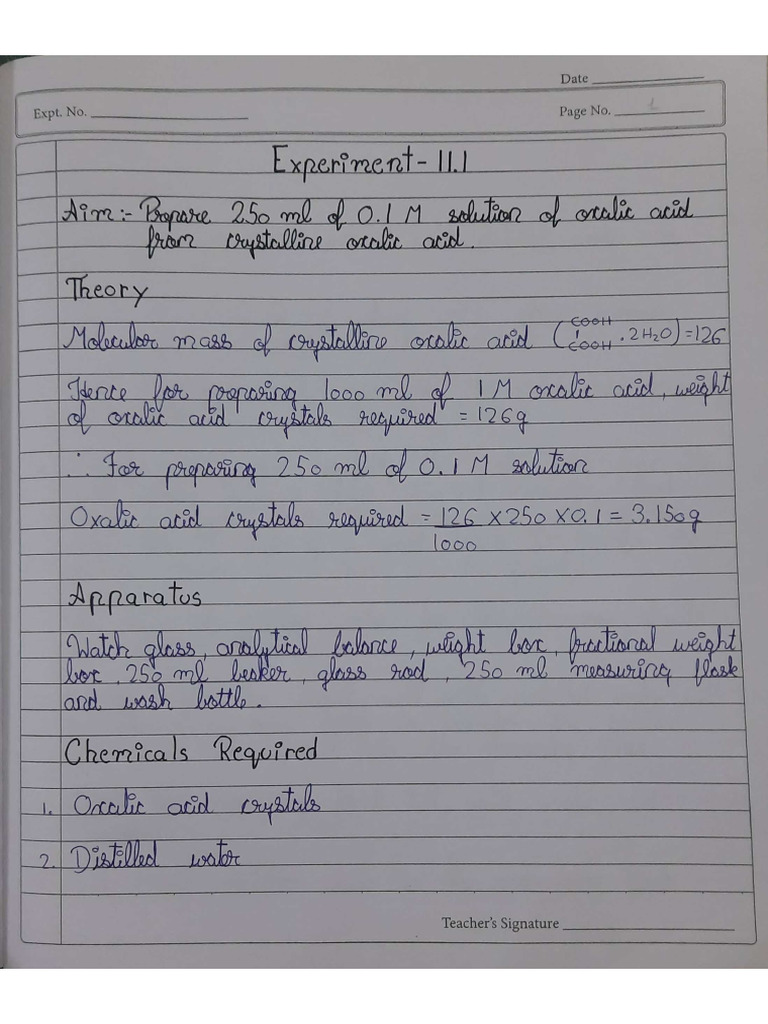 Date
Expt. No.
Page No. 1
Experiment - 11.1
Aim:- Prepare 250 ml of 0.1 M solution of oxalic acid
from crystalline oxalic acid.
Theory
Molecular mass of crystalline oxalic acid (COOH
|
COOH . 2H₂O) = 126
Hence for preparing 1000 ml of 1 M oxalic acid, weight
of oxalic acid crystals required = 126g
∴ For preparing 250 ml of 0.1 M solution
Oxalic acid crystals required = 126 × 250 × 0.1 = 3.150g
1000
Apparatus
Watch glass, analytical balance, weight box, fractional weight
box, 250 ml beaker, glass rod, 250 ml measuring flask
and wash bottle.
Chemicals Required
1. Oxalic acid crystals
2. Distilled water
Teacher's Signature